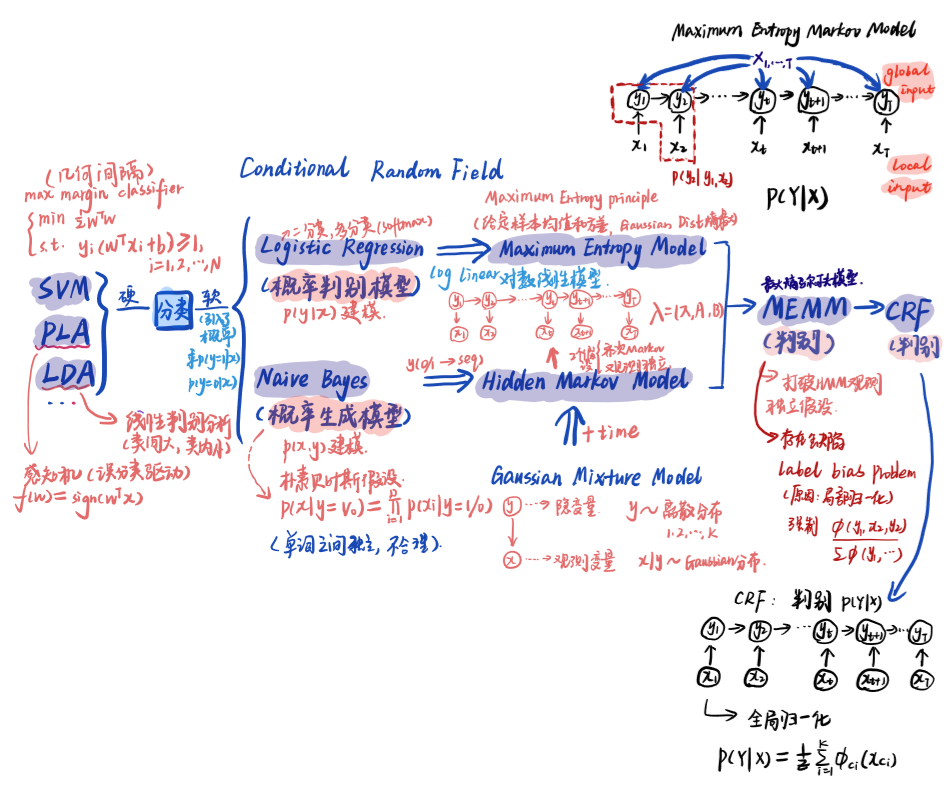 Maximum Entropy Markov Model
x₁,...,T
global input
y₁ → y₂ → ... → yt → yt+1 → ... → yT
x₁ x₂ xt xt+1 xT
P(y₂|y₁,x₂)
local input
P(Y|X)
Conditional Random Field
(几何间隔)
max margin classifier
min ½wᵀw
s.t. yi(wᵀxi+b)≥1,
i=1,2,...,N
SVM
PLA
LDA
...
硬
分类
软
(引入了
概率
p(y=1|x)
p(y=0|x)
线性判别分析
(类间大, 类内小)
感知机(误分类驱动)
f(w)=sign(wᵀx)
二分类,多分类(softmax)
Logistic Regression
(概率判别模型)
p(y|x)建模.
Naive Bayes
(概率生成模型)
p(x,y)建模.
朴素贝叶斯假设
p(x|y=1/0)=∏ᵢ₌₁ᵖ p(xi|y=1/0)
(单词之间独立,不合理).
Maximum Entropy principle
(给定样本均值和方差, Gaussian Dist熵最大)
Maximum Entropy Model
Log Linear 对数线性模型
y₁ y₂ yt yt+1 yT
x₁ x₂ xt xt+1 xT
λ=(π,A,B)
y(0/1 → seq)
2个假设
齐次Markov
观测独立
Hidden Markov Model
+ time
Gaussian Mixture Model
y ⋯→ 隐变量 y~离散分布
1,2,...,K
x ⋯→ 观测变量 x|y~Gaussian分布.
最大熵马尔可夫模型
MEMM
(判别)
CRF
(判别)
打破HMM观测
独立假设.
存在缺陷
Label bias problem
(原因:局部归一化)
强制 φ(y₁,x₂,y₂)
Σφ(y₁,...)
CRF: 判别 P(Y|X)
y₁ → y₂ → ... yt → yt+1 → ... yT
x₁ x₂ xt xt+1 xT
全局归一化
P(Y|X)=1/Z Σᵢ₌₁ᴷ φci(xci)